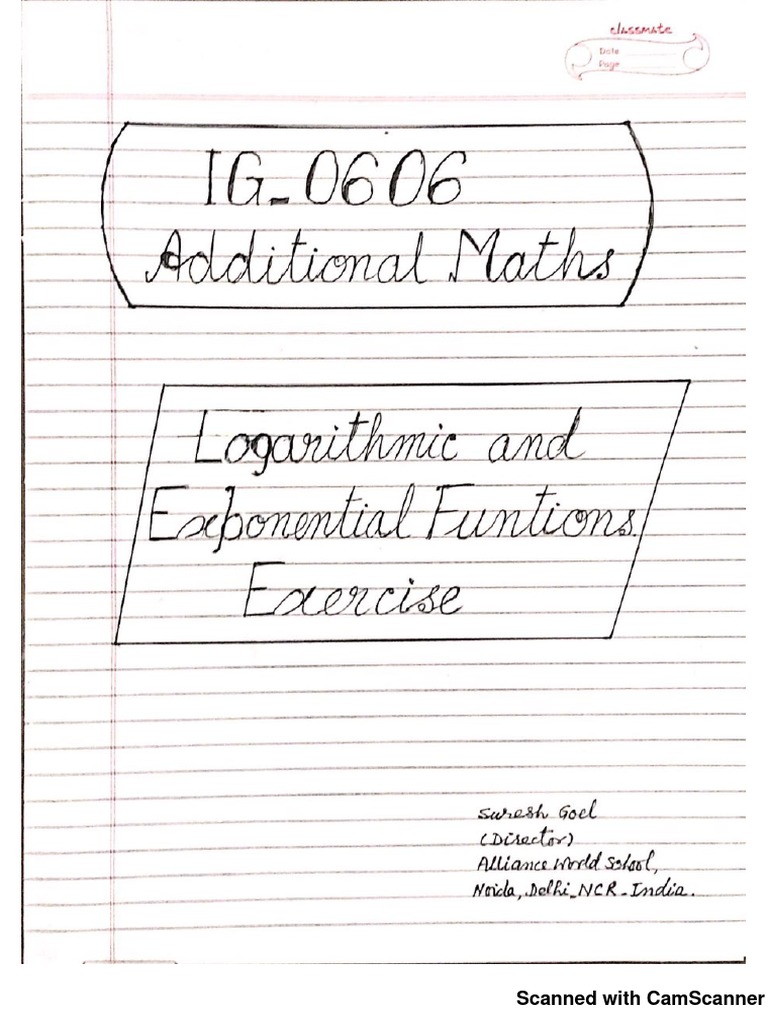 classmate
Date
Page
IG-0606
Additional Maths
Logarithmic and
Exponential Funtions.
Exercise
Suresh Goel
(Director)
Alliance World School,
Noida, Delhi-NCR-India.
Scanned with CamScanner